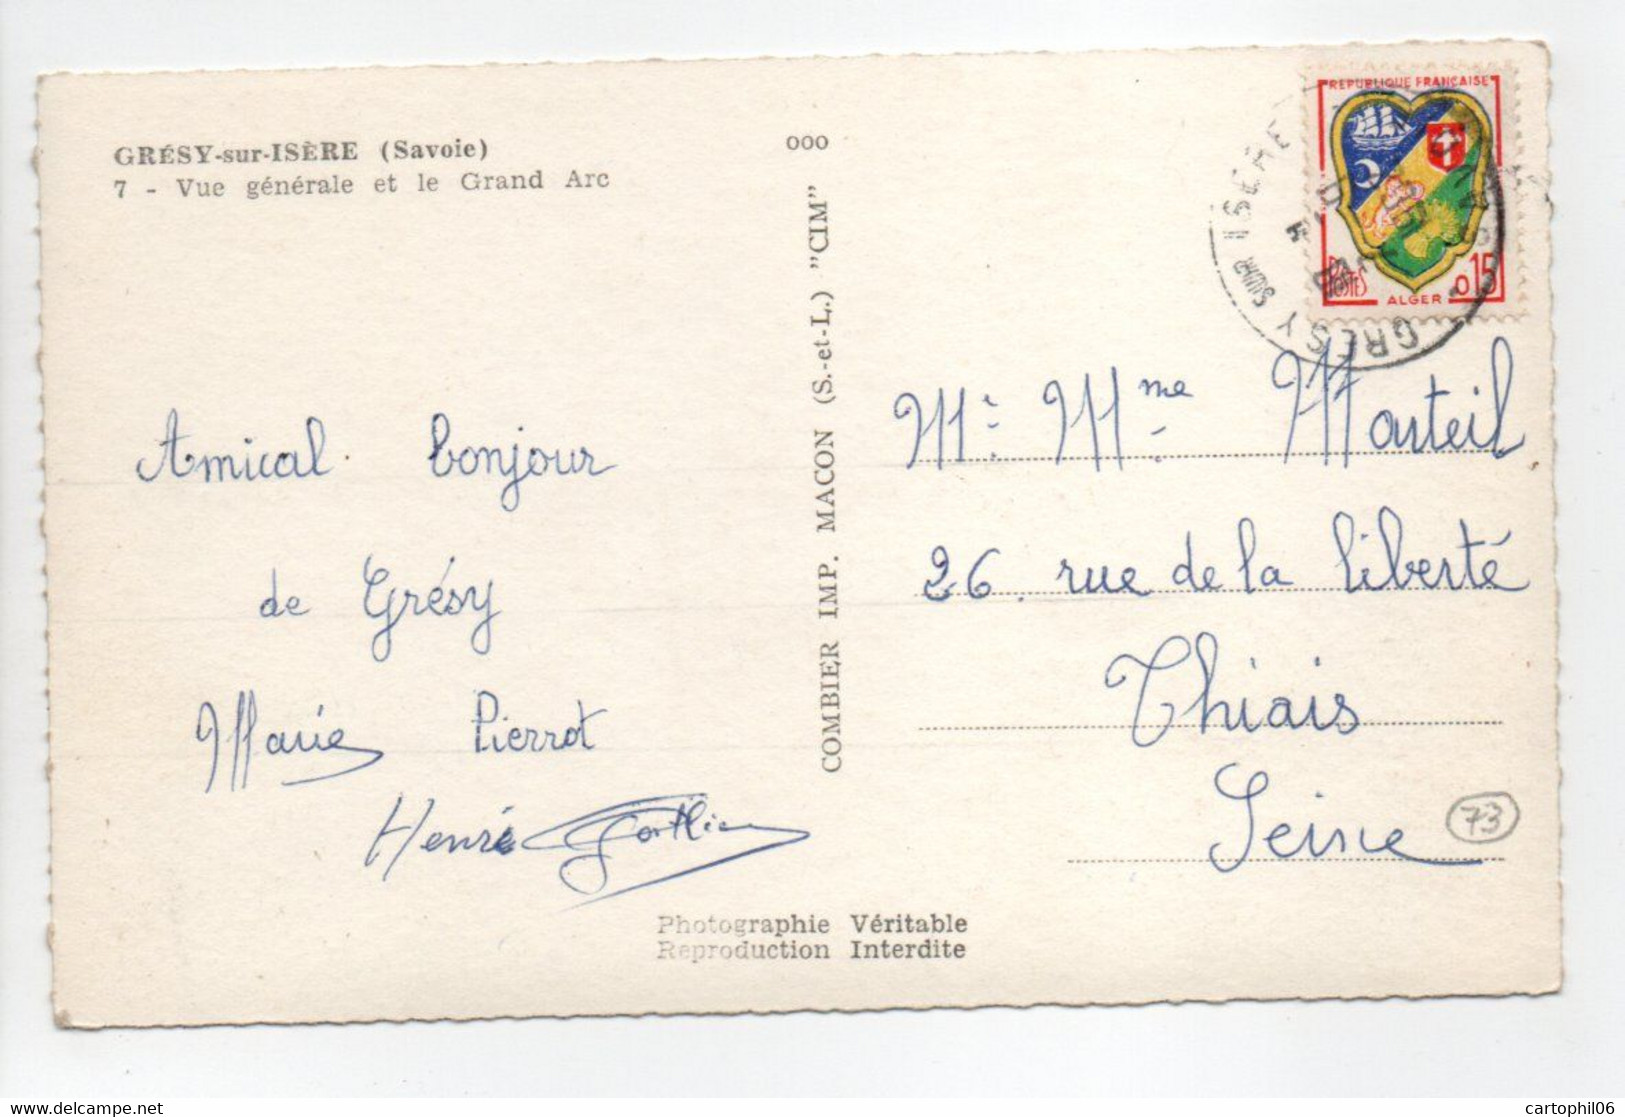 GRÉSY-sur-ISÈRE (Savoie)
7 - Vue générale et le Grand Arc
000
REPUBLIQUE FRANÇAISE
POSTES
ALGER
0,15
GRESY SUR ISERE
COMBIER IMP. MACON (S.-et-L.) "CIM"
Amical bonjour
de Grésy
Marie Pierrot
Henri
Mr Mme Marteil
26. rue de la liberté
Thiais
Seine
73
Photographie Véritable
Reproduction Interdite
cartophil06